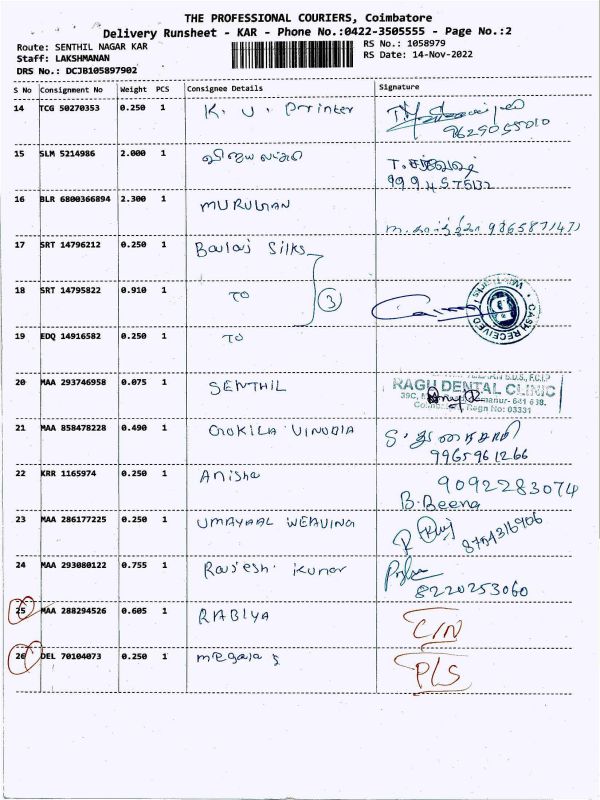 THE PROFESSIONAL COURIERS, Coimbatore
Delivery Runsheet - KAR - Phone No.:0422-3505555 - Page No.:2
Route: SENTHIL NAGAR KAR
RS No.: 1058979
Staff: LAKSHMANAN
RS Date: 14-Nov-2022
DRS No.: DCJB105897902
S No Consignment No Weight PCS Consignee Details Signature
14 TCG 50270353 0.250 1 K. U. Printer
9629055010
15 SLM 5214986 2.000 1
16 BLR 6800366894 2.300 1 MURUGAN
17 SRT 14796212 0.250 1 Balaj Silks
18 SRT 14795822 0.910 1 TO 3
CASH RECEIVED
19 EDQ 14916582 0.250 1 TO
20 MAA 293746958 0.075 1 SENTHIL
RAGU DENTAL CLINIC
Regn No: 03331
21 MAA 858478228 0.490 1 GOKILA VINODIA
9965961266
22 KRR 1165974 0.250 1 Anisha 9092283074
B. Beena
23 MAA 286177225 0.250 1 UMAYAAL WEAVING
24 MAA 293080122 0.755 1 Rajesh Kumar
8220253060
25 MAA 288294526 0.605 1 RABIYA C/N
26 DEL 70104073 0.250 1 megala s PLS